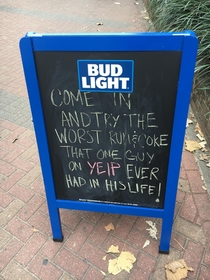 BUD
LIGHT.
COME IN
AND TRY THE
WORST RUM & COKE
THAT ONE GUY
ON YELP EVER
HAD IN HIS LIFE!